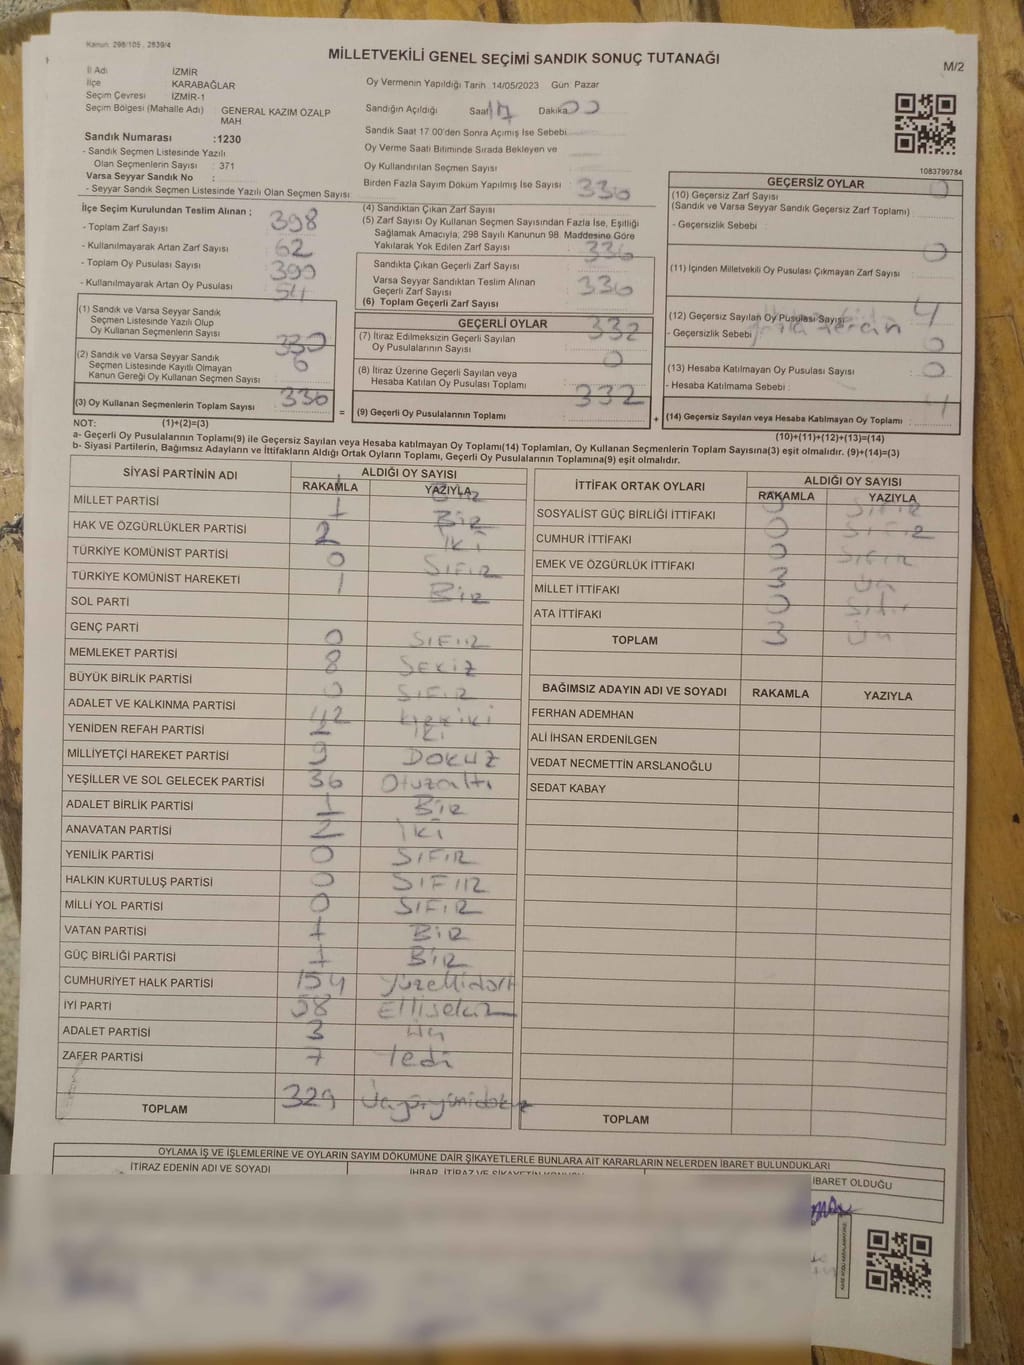 Kanun: 298/105, 2839/4
MİLLETVEKİLİ GENEL SEÇİMİ SANDIK SONUÇ TUTANAĞI
M/2
İl Adı İZMİR
İlçe KARABAĞLAR
Seçim Çevresi İZMİR-1
Seçim Bölgesi (Mahalle Adı) GENERAL KAZIM ÖZALP MAH
Sandık Numarası :1230
- Sandık Seçmen Listesinde Yazılı
Olan Seçmenlerin Sayısı : 371
Varsa Seyyar Sandık No :
- Seyyar Sandık Seçmen Listesinde Yazılı Olan Seçmen Sayısı
Oy Vermenin Yapıldığı Tarih 14/05/2023 Gün: Pazar
Sandığın Açıldığı Saat 17 Dakika 00
Sandık Saat 17:00'den Sonra Açımış İse Sebebi
Oy Verme Saati Bitiminde Sırada Bekleyen ve
Oy Kullandırılan Seçmen Sayısı
Birden Fazla Sayım Döküm Yapılmış İse Sayısı
1083799784
İlçe Seçim Kurulundan Teslim Alınan ;
- Toplam Zarf Sayısı 398
- Kullanılmayarak Artan Zarf Sayısı 62
- Toplam Oy Pusulası Sayısı 390
- Kullanılmayarak Artan Oy Pusulası 54
(1) Sandık ve Varsa Seyyar Sandık
Seçmen Listesinde Yazılı Olup
Oy Kullanan Seçmenlerin Sayısı 330
(2) Sandık ve Varsa Seyyar Sandık
Seçmen Listesinde Kayıtlı Olmayan
Kanun Gereği Oy Kullanan Seçmen Sayısı 6
(3) Oy Kullanan Seçmenlerin Toplam Sayısı 336
(4) Sandıktan Çıkan Zarf Sayısı 336
(5) Zarf Sayısı Oy Kullanan Seçmen Sayısından Fazla İse, Eşitliği
Sağlamak Amacıyla; 298 Sayılı Kanunun 98. Maddesine Göre
Yakılarak Yok Edilen Zarf Sayısı
Sandıkta Çıkan Geçerli Zarf Sayısı 336
Varsa Seyyar Sandıktan Teslim Alınan
Geçerli Zarf Sayısı
(6) Toplam Geçerli Zarf Sayısı 336
GEÇERLİ OYLAR
(7) İtiraz Edilmeksizin Geçerli Sayılan
Oy Pusulalarının Sayısı 332
(8) İtiraz Üzerine Geçerli Sayılan veya
Hesaba Katılan Oy Pusulası Toplamı 0
= (9) Geçerli Oy Pusulalarının Toplamı 332
GEÇERSİZ OYLAR
(10) Geçersiz Zarf Sayısı 0
(Sandık ve Varsa Seyyar Sandık Geçersiz Zarf Toplamı)
- Geçersizlik Sebebi :
(11) İçinden Milletvekili Oy Pusulası Çıkmayan Zarf Sayısı 0
(12) Geçersiz Sayılan Oy Pusulası Sayısı 4
- Geçersizlik Sebebi
(13) Hesaba Katılmayan Oy Pusulası Sayısı 0
- Hesaba Katılmama Sebebi :
+ (14) Geçersiz Sayılan veya Hesaba Katılmayan Oy Toplamı 4
NOT: (1)+(2)=(3)
(10)+(11)+(12)+(13)=(14)
a- Geçerli Oy Pusulalarının Toplamı(9) ile Geçersiz Sayılan veya Hesaba katılmayan Oy Toplamı(14) Toplamları, Oy Kullanan Seçmenlerin Toplam Sayısına(3) eşit olmalıdır. (9)+(14)=(3)
b- Siyasi Partilerin, Bağımsız Adayların ve İttifakların Aldığı Ortak Oyların Toplamı, Geçerli Oy Pusulalarının Toplamına(9) eşit olmalıdır.
SİYASİ PARTİNİN ADI ALDIĞI OY SAYISI
RAKAMLA YAZIYLA
MİLLET PARTİSİ 1 Bir
HAK VE ÖZGÜRLÜKLER PARTİSİ 2 İki
TÜRKİYE KOMÜNİST PARTİSİ 0 SIFIR
TÜRKİYE KOMÜNİST HAREKETİ 1 Bir
SOL PARTİ
GENÇ PARTİ 0 SIFIIR
MEMLEKET PARTİSİ 8 SEKİZ
BÜYÜK BİRLİK PARTİSİ 0 SIFIR
ADALET VE KALKINMA PARTİSİ 42
YENİDEN REFAH PARTİSİ 2 İKİ
MİLLİYETÇİ HAREKET PARTİSİ 9 DOKUZ
YEŞİLLER VE SOL GELECEK PARTİSİ 36 Otuzaltı
ADALET BİRLİK PARTİSİ 1 Bir
ANAVATAN PARTİSİ 2 İki
YENİLİK PARTİSİ 0 SIFIR
HALKIN KURTULUŞ PARTİSİ 0 SIFIIR
MİLLİ YOL PARTİSİ 0 SIFIR
VATAN PARTİSİ 1 Bir
GÜÇ BİRLİĞİ PARTİSİ 1 Bir
CUMHURİYET HALK PARTİSİ 154 Yüzellidört
İYİ PARTİ 58 Ellisekiz
ADALET PARTİSİ 3 Üç
ZAFER PARTİSİ 7 Yedi
TOPLAM 329 Üçyüzyirmidokuz
İTTİFAK ORTAK OYLARI ALDIĞI OY SAYISI
RAKAMLA YAZIYLA
SOSYALİST GÜÇ BİRLİĞİ İTTİFAKI 0 SIFIR
CUMHUR İTTİFAKI 0 SIFIR
EMEK VE ÖZGÜRLÜK İTTİFAKI 0 SIFIR
MİLLET İTTİFAKI 3 Üç
ATA İTTİFAKI 0 Sıfır
TOPLAM 3 Üç
BAĞIMSIZ ADAYIN ADI VE SOYADI RAKAMLA YAZIYLA
FERHAN ADEMHAN
ALİ İHSAN ERDENİLGEN
VEDAT NECMETTİN ARSLANOĞLU
SEDAT KABAY
TOPLAM
OYLAMA İŞ VE İŞLEMLERİNE VE OYLARIN SAYIM DÖKÜMÜNE DAİR ŞİKAYETLERLE BUNLARA AİT KARARLARIN NELERDEN İBARET BULUNDUKLARI
İTİRAZ EDENİN ADI VE SOYADI
İHBAR, İTİRAZ VE ŞİKAYETİN KONUSU
İBARET OLDUĞU